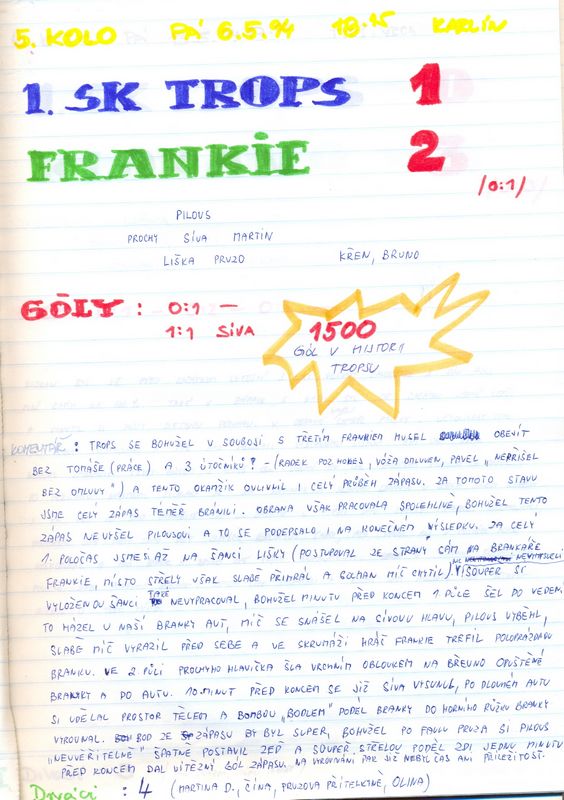 5. KOLO PÁ 6.5.94 18:15 KARLÍN
1. SK TROPS 1
FRANKIE 2
/0:1/
PILOUS
PROCHY SÍVA MARTIN
LIŠKA PRUZO KŘEN, BRUNO
GÓLY : 0:1 —
1:1 SÍVA
1500
GÓL V HISTORII
TROPSU
KOMENTÁŘ : TROPS SE BOHUŽEL V SOUBOJI S TŘETÍM FRANKIEM MUSEL OBEJÍT
BEZ TOMÁŠE (PRÁCE) A 3 ÚTOČNÍKŮ? - (RADEK POZ. HOKEJ, VÓŽA OMLUVEN, PAVEL „NEPŘIŠEL
BEZ OMLUVY") A TENTO OKAMŽIK OVLIVNIL I CELÝ PRŮBĚH ZÁPASU. ZA TOHOTO STAVU
JSME CELÝ ZÁPAS TÉMĚŘ BRÁNILI. OBRANA VŠAK PRACOVALA SPOLEHLIVĚ, BOHUŽEL TENTO
ZÁPAS NEVYŠEL PILOUSOVI A TO SE PODEPSALO I NA KONEČNÉM VÝSLEDKU. ZA CELÝ
1. POLOČAS JSME SI AŽ NA ŠANCI LIŠKY (POSTUPOVAL ZE STRANY SÁM NA BRANKÁŘE
FRANKIE, MÍSTO STŘELY VŠAK SLABĚ PŘIHRÁL A GÓLMAN MÍČ CHYTIL) NIC NEVYMYSLELI. SOUPEŘ SI
VYLOŽENOU ŠANCI TAKÉ NEVYPRACOVAL, BOHUŽEL MINUTU PŘED KONCEM 1. PŮLE ŠEL DO VEDENÍ
TO HÁZEL U NAŠÍ BRANKY AUT, MÍČ SE SNÁŠEL NA SÍVOVU HLAVU, PILOUS VYBĚHL,
SLABĚ MÍČ VYRAZIL PŘED SEBE A VE SKRUMÁŽI HRÁČ FRANKIE TREFIL POLOPRÁZDNOU
BRANKU. VE 2. PŮLI PROCHYHO HLAVIČKA ŠLA VRCHNÍM OBLOUKEM NA BŘEVNO OPUŠTĚNÉ
BRANKY A DO AUTU. 10. MINUT PŘED KONCEM SE JIŽ SÍVA VYSUNUL, PO DLOUHÉM AUTU
SI UDĚLAL PROSTOR TĚLEM A BOMBOU „BODLEM" PODÉL BRANKY DO HORNÍHO RŮŽKU BRANKY
VYROVNAL. BOD ZE ZÁPASU BY BYL SUPER, BOHUŽEL PO FAULU PRUZA SI PILOUS
„NEUVĚŘITELNĚ" ŠPATNĚ POSTAVIL ZEĎ A SOUPEŘ STŘELOU PODÉL ZDI JEDNU MINUTU
PŘED KONCEM DAL VÍTĚZNÝ GÓL ZÁPASU. NA VYROVNÁNÍ PAK JIŽ NEBYL ČAS ANI PŘÍLEŽITOST.
Diváci : 4 (MARTINA D., ČÍŇA, PRUZOVA PŘÍTELKYNĚ, OLINA)